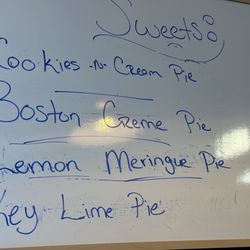 Sweets
Cookies -n- Cream Pie
Boston Creme Pie
Lemon Meringue Pie
Key Lime Pie